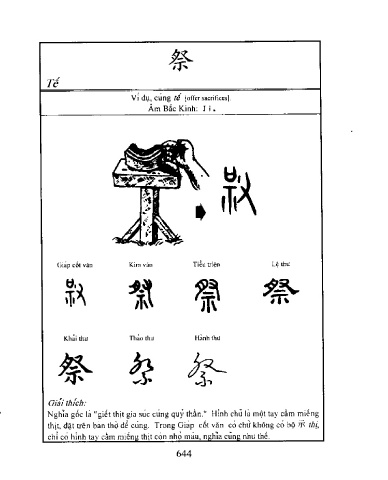 祭
Tế
Ví dụ, cúng tế [offer sacrifices].
Âm Bắc Kinh: Jì.
Giáp cốt văn Kim văn Tiểu triện Lệ thư
祭 祭 祭 祭
Khải thư Thảo thư Hành thư
祭 祭 祭
Giải thích:
Nghĩa gốc là "giết thịt gia súc cúng quỷ thần." Hình chữ là một tay cầm miếng
thịt, đặt trên bàn thờ để cúng. Trong Giáp cốt văn có chữ không có bộ 示 thị,
chỉ có hình tay cầm miếng thịt còn nhỏ máu, nghĩa cũng như thế.
644